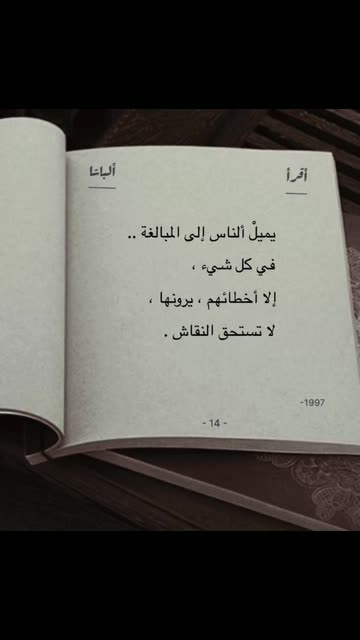 أقرأ
ألباشا
يميلْ ألناس إلى المبالغة ..
في كل شيء ،
إلا أخطائهم ، يرونها ،
لا تستحق النقاش .
-1997
- 14 -